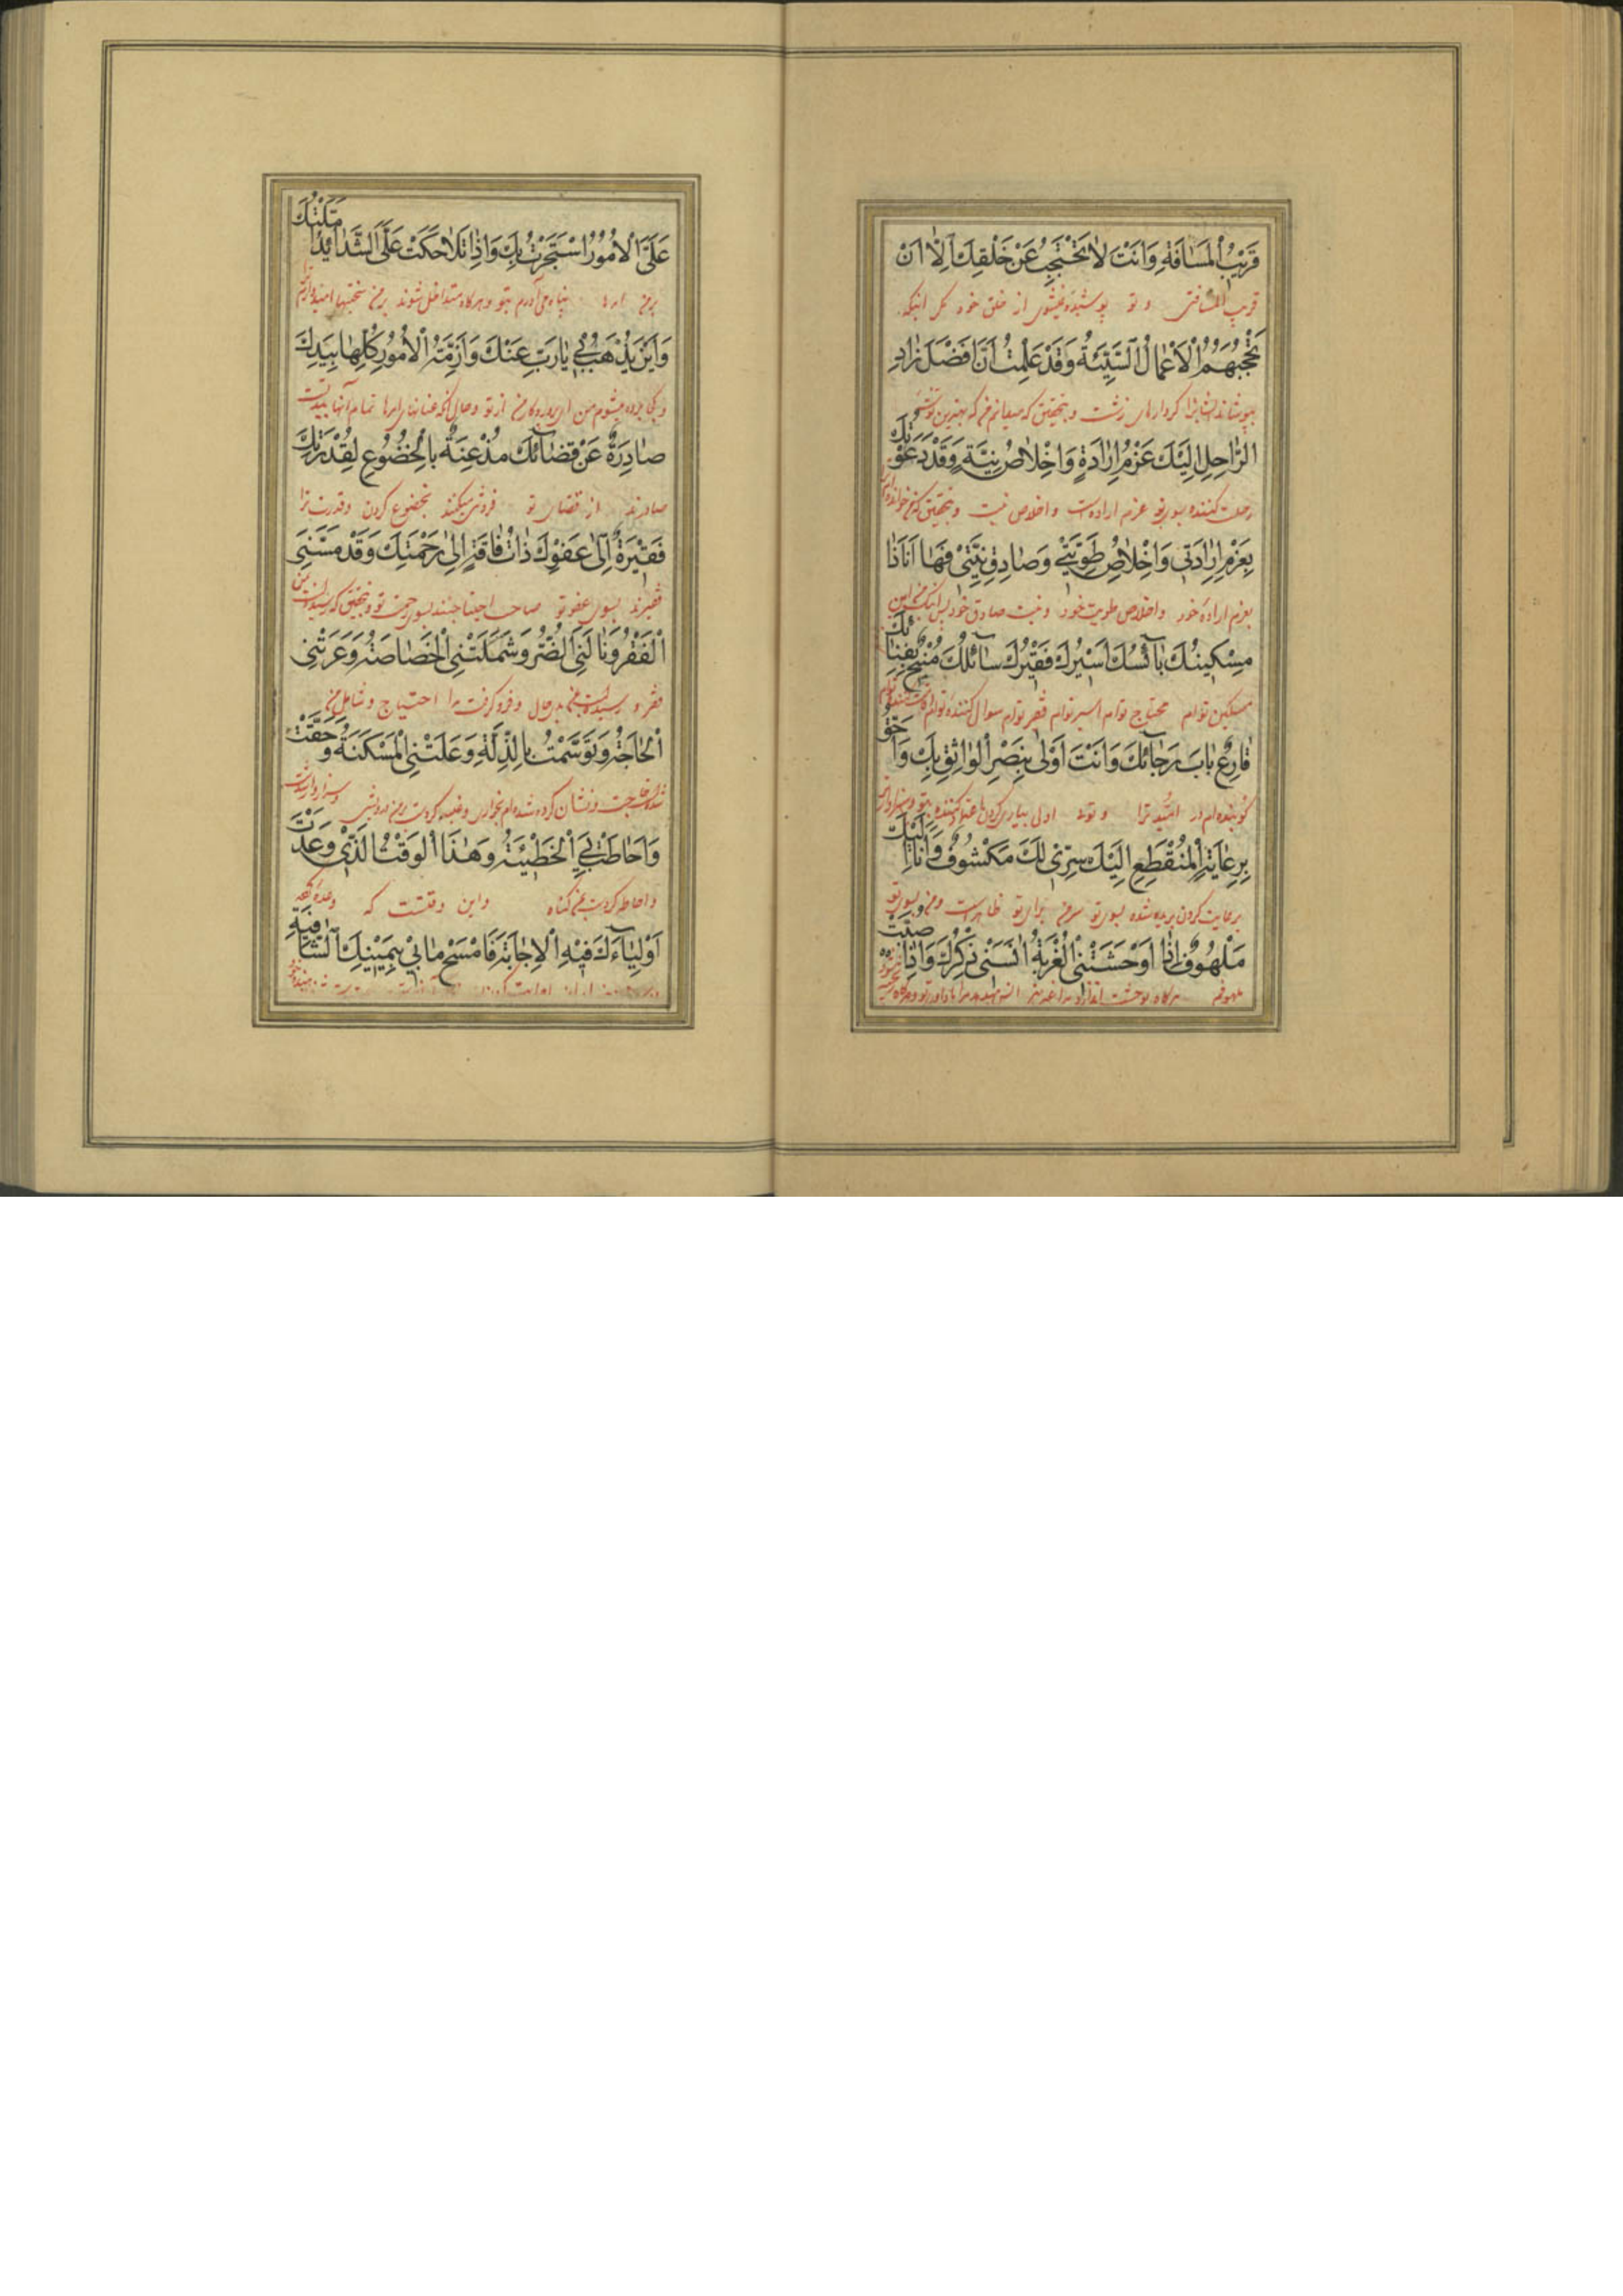 قَرِيبُ الْمَسَافَةِ وَاَنْتَ لَا تَحْتَجِبُ عَنْ خَلْقِكَ اِلَّا اَنْ
قریب المسافتی و تو پوشیده نمیشوی از خلق خود مگر اینکه
تَحْجُبَهُمُ الْاَعْمَالُ السَّيِّئَةُ وَقَدْ عَلِمْتُ اَنَّ اَفْضَلَ زَادِ
بپوشاند ایشانرا کردارهای زشت و بتحقیق که میدانم من که بهترین توشه
الرَّاحِلِ اِلَيْكَ عَزْمُ اِرَادَةٍ وَاِخْلَاصُ نِيَّةٍ وَقَدْ دَعَوْتُكَ
رحلت کننده بسوی تو عزم ارادست و اخلاص نیت و بتحقیق که خوانده ام
بِعَزْمِ اِرَادَتِي وَاِخْلَاصِ طَوِيَّتِي وَصَادِقِ نِيَّتِي فَهَا اَنَا ذَا
بعزم اراده خود و اخلاص طویت خود و نیت صادق خود پس اینک من این
مِسْكِينُكَ بَائِسُكَ اَسِيرُكَ فَقِيرُكَ سَائِلُكَ مُنِيخٌ بِفِنَائِكَ
مسکین توام محتاج توام اسیر توام فقیر توام سوال کننده توام
قَارِعٌ بَابَ رَجَائِكَ وَاَنْتَ اَوْلَى بِنَصْرِ الْوَاثِقِ بِكَ وَاَحَقُّ
کوبنده ام در امید ترا و توئی اولی بیاری کردن اعتماد کننده بتو و سزاوارتر
بِرِعَايَةِ الْمُنْقَطِعِ اِلَيْكَ سِرِّي لَكَ مَكْشُوفٌ وَاَنَا اِلَيْكَ
برعایت کردن بریده شده بسوی تو سر من برای تو ظاهرست و من بسوی تو
مَلْهُوفٌ اِذَا اَوْحَشَتْنِي الْغُرْبَةُ اٰنَسَنِي ذِكْرُكَ وَاِذَا صُبَّتْ
ملهوفم هرگاه بوحشت اندازد مرا غربت انس میدهد مرا یاد تو و هرگاه ریخته شود
عَلَيَّ الْاُمُورُ اسْتَجَرْتُ بِكَ وَاِذَا تَلَاحَكَتْ عَلَيَّ الشَّدَائِدُ اَمَّلْتُكَ
بر من امرها پناه می آورم بتو و هرگاه متداخل شوند بر من سختیها امیدوارم ترا
وَاَيْنَ يُذْهَبُ بِي يَا رَبِّ عَنْكَ وَاَزِمَّةُ الْاُمُورِ كُلِّهَا بِيَدِكَ
و کجا برده میشوم من ای پروردگار من از تو و حال آنکه عنانهای امرها تمام آنها بید تست
صَادِرَةٌ عَنْ قَضَائِكَ مُذْعِنَةٌ بِالْخُضُوعِ لِقُدْرَتِكَ
صادرند از قضای تو فروتنی میکنند بخضوع کردن و قدرت ترا
فَقِيرَةٌ اِلَى عَفْوِكَ ذَاتُ فَاقَةٍ اِلَى رَحْمَتِكَ وَقَدْ مَسَّنِيَ
فقیرند بسوی عفو تو صاحب احتیاجند بسوی رحمت تو و بتحقیق که رسیده است بمن
الْفَقْرُ وَنَالَنِيَ الضُّرُّ وَشَمِلَتْنِي الْخَصَاصَةُ وَعَرَتْنِي
فقر و رسیده است بمن بدحالی و فرو گرفت مرا احتیاج و شامل من
الْحَاجَةُ وَتَوَسَّمْتُ بِالذِّلَّةِ وَعَلَتْنِي الْمَسْكَنَةُ وَحَقَّتْ
شده است حاجت و نشان کرده شده ام بخواری و غلبه کردست بر من درویشی و سزاوار شدست
وَاَحَاطَتْ بِيَ الْخَطِيئَةُ وَهٰذَا الْوَقْتُ الَّذِي وَعَدْتَ
و احاطه کردست بمن گناه و این وقتست که وعده کرده
اَوْلِيَاءَكَ فِيهِ الْاِجَابَةَ فَامْسَحْ مَا بِي بِيَمِينِكَ الشَّافِيَةِ